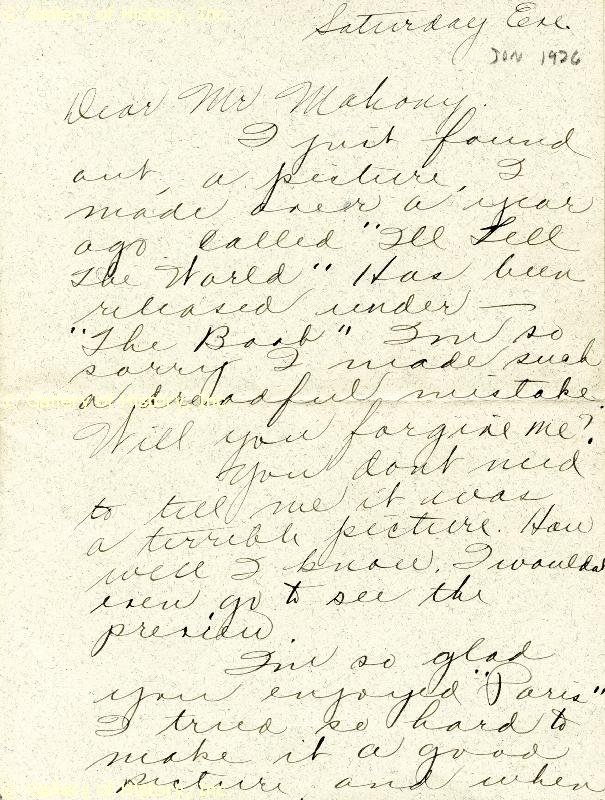 Gallery of History, Inc.
Saturday Eve.
JUN 1926
Dear Mr Mahony.
I just found
out, a picture, I
made over a year
ago called "Ill Tell
The World" Has been
released under —
"The Boob" I'm so
sorry I made such
a dreadful mistake.
Gallery of History, Inc.
Will you forgive me?
You dont need
to tell me it was
a terrible picture. How
well I know. I wouldnt
even go to see the
preview
I'm so glad
you enjoyed "Paris"
I tried so hard to
make it a good
picture, and when